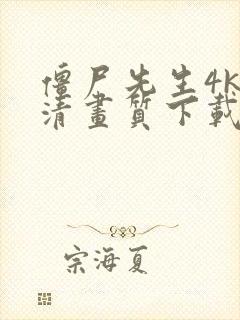 僵尸先生4k
清畫質下載
宗海夏